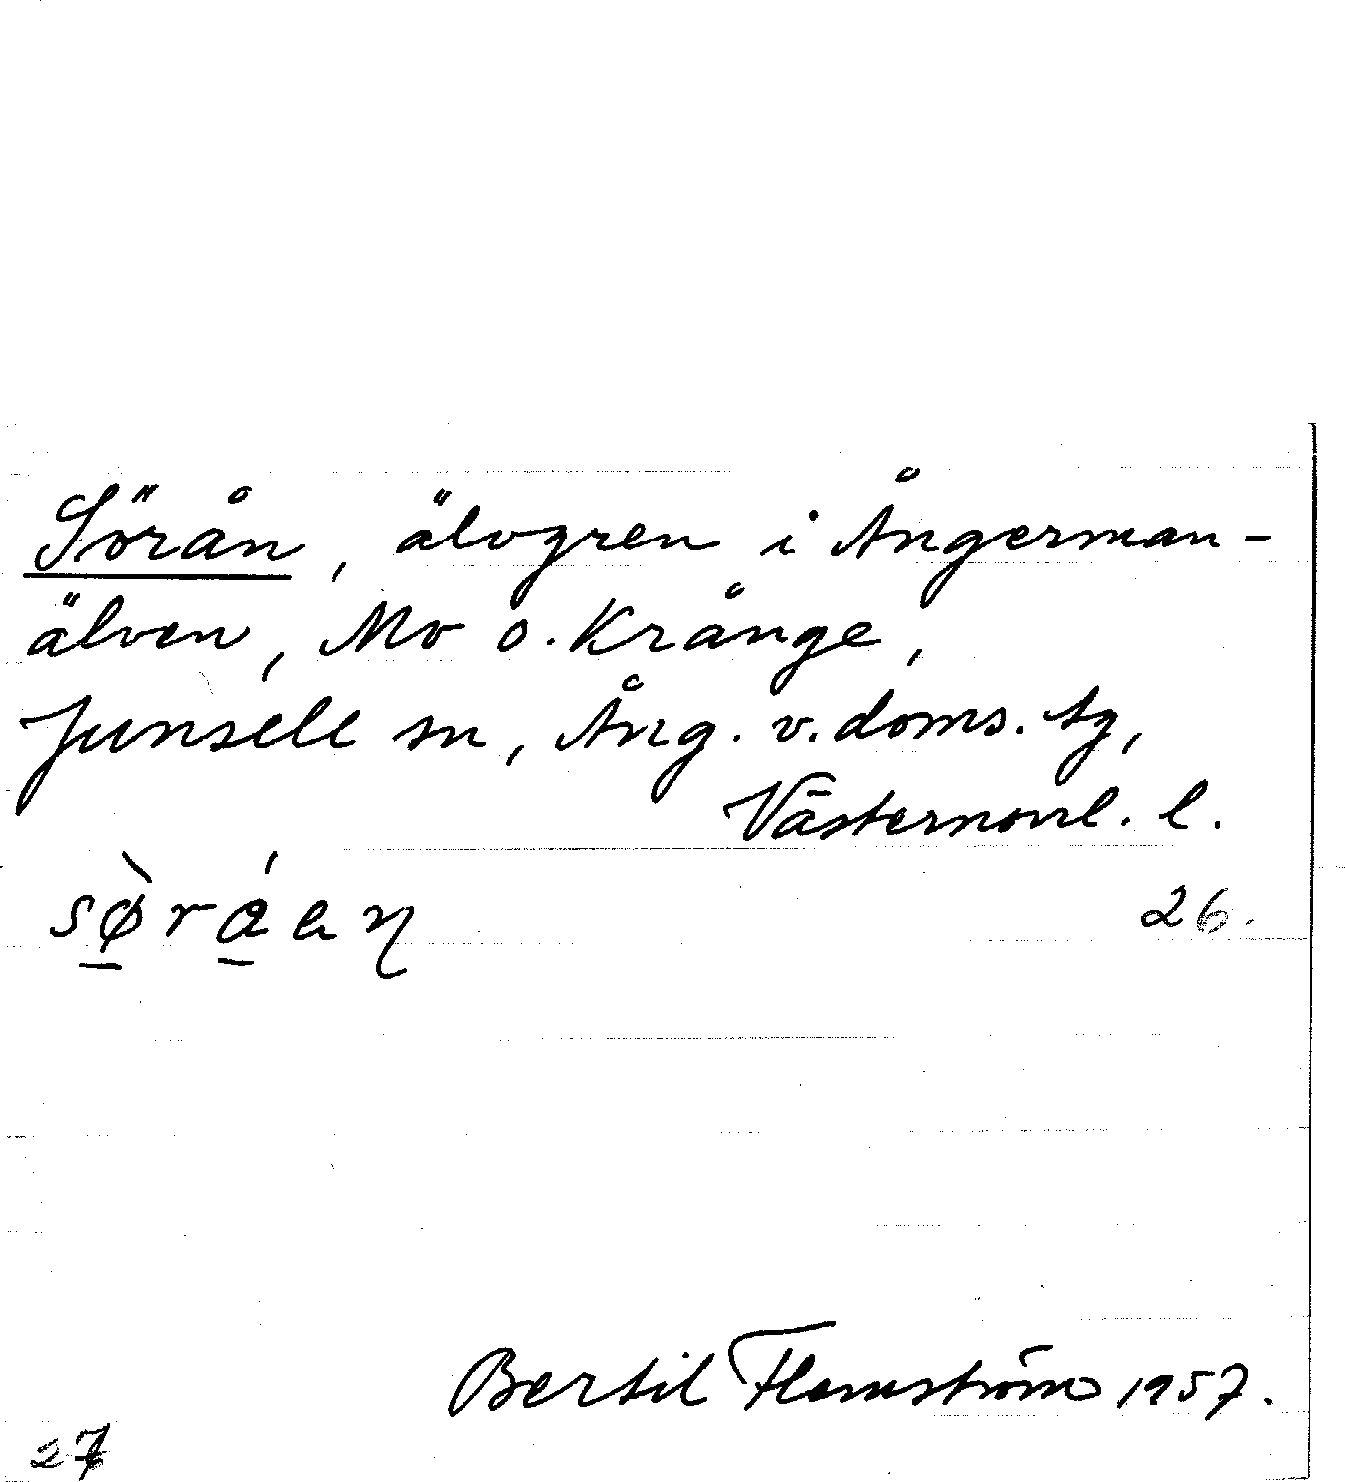 Sörån, älvgren i Ångerman-
älven, Mo o. Krånge,
Junsele sn, Ång. v. doms. tg,
Västernorrl. l.
sø̱̀rá̱aɳ
26.
Bertil Flemström 1957.
27